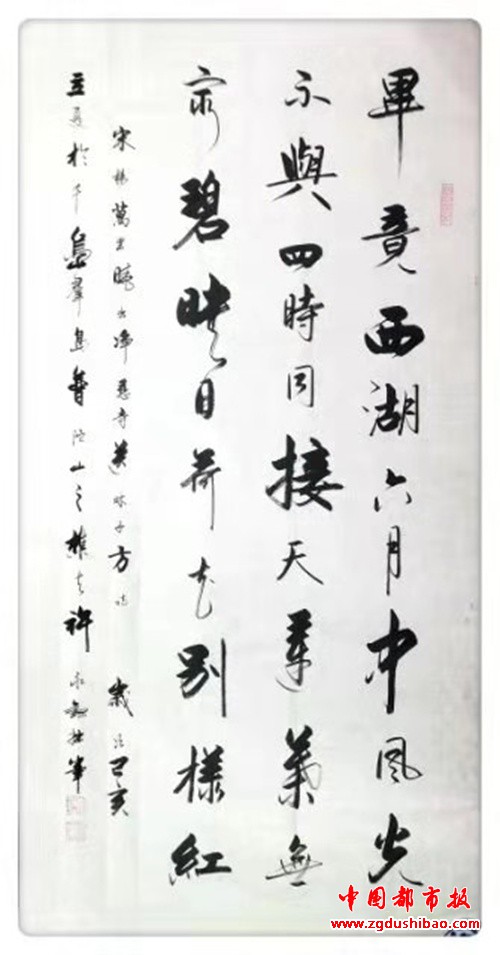 畢竟西湖六月中風光
不與四時同接天蓮葉無
窮碧映日荷花別樣紅
宋楊萬里曉出淨慈寺送林子方詩 歲次己亥
立夏於千島群島普陀山之樵夫許永
中国都市报
www.zgdushibao.com